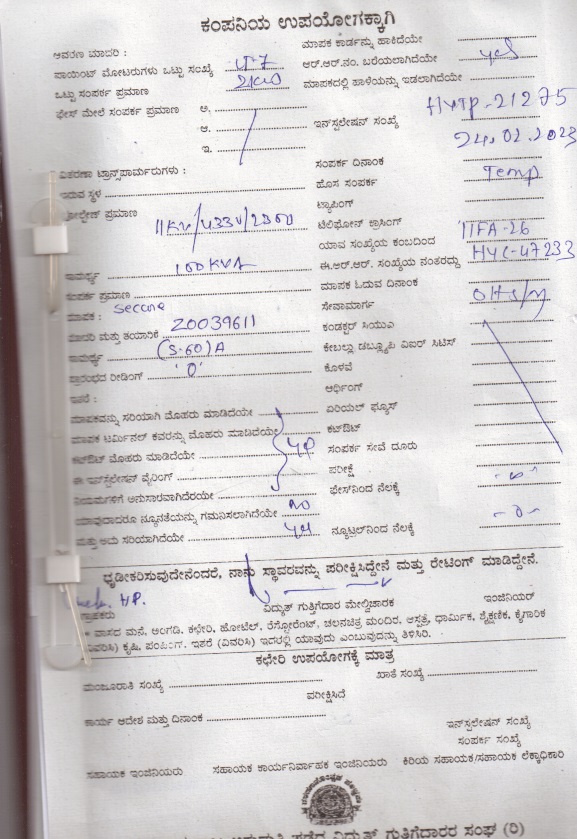 ಕಂಪನಿಯ ಉಪಯೋಗಕ್ಕಾಗಿ
ಆವರಣ ಮಾದರಿ :
ಪಾಯಿಂಟ್ ಮೋಟರುಗಳು ಒಟ್ಟು ಸಂಖ್ಯೆ
ಒಟ್ಟು ಸಂಪರ್ಕ ಪ್ರಮಾಣ
ಫೇಸ್ ಮೇಲೆ ಸಂಪರ್ಕ ಪ್ರಮಾಣ ಅ.
ಆ.
ಇ.
ವಿತರಣಾ ಟ್ರಾನ್ಸ್‌ಪಾರ್ಮರುಗಳು :
ಇರುವ ಸ್ಥಳ
ವೋಲ್ಟೇಜ್ ಪ್ರಮಾಣ 11KV/433V/250V
ಸಾಮರ್ಥ್ಯ 100KVA
ಸಂಪರ್ಕ ಪ್ರಮಾಣ
ಮಾಪಕ : Secure
ಮಾದರಿ ಮತ್ತು ತಯಾರಿಕೆ 20039611
ಸಾಮರ್ಥ್ಯ (5-60)A
ಪ್ರಾರಂಭದ ರೀಡಿಂಗ್ '0'
ಇತರೆ :
ಮಾಪಕವನ್ನು ಸರಿಯಾಗಿ ಮೊಹರು ಮಾಡಿದೆಯೇ
ಮಾಪಕ ಟರ್ಮಿನಲ್ ಕವರನ್ನು ಮೊಹರು ಮಾಡಿದೆಯೇ
ಕಟ್‌ಔಟ್ ಮೊಹರು ಮಾಡಿದೆಯೇ
ಈ ಇನ್‌ಸ್ಟಲೇಷನ್ ವೈರಿಂಗ್
ನಿಯಮಗಳಿಗೆ ಅನುಸಾರವಾಗಿದೆರಯೇ
ಯಾವುದಾದರೂ ನ್ಯೂನತೆಯನ್ನು ಗಮನಿಸಲಾಗಿದೆಯೇ NO
ಮತ್ತು ಅದು ಸರಿಯಾಗಿದೆಯೇ
ಮಾಪಕ ಕಾರ್ಡನ್ನು ಹಾಕಿದೆಯೇ
ಆರ್.ಆರ್.ನಂ. ಬರೆಯಲಾಗಿದೆಯೇ yes
ಮಾಪಕದಲ್ಲಿ ಹಾಳೆಯನ್ನು ಇಡಲಾಗಿದೆಯೇ
ಇನ್‌ಸ್ಟಲೇಷನ್ ಸಂಖ್ಯೆ HYTP-21275
ಸಂಪರ್ಕ ದಿನಾಂಕ 24.02.2023
ಹೊಸ ಸಂಪರ್ಕ Temp
ಟ್ಯಾಪಿಂಗ್
ಟೆಲಿಫೋನ್ ಕ್ರಾಸಿಂಗ್
ಯಾವ ಸಂಖ್ಯೆಯ ಕಂಬದಿಂದ 11FA-26
ಈ.ಆರ್.ಆರ್. ಸಂಖ್ಯೆಯ ನಂತರದ್ದು HYC-47233
ಮಾಪಕ ಓದುವ ದಿನಾಂಕ
ಸೇವಾಮಾರ್ಗ
ಕಂಡಕ್ಟರ್ ಸಿಯುಎ
ಕೇಬಲ್ಲು ಡಬ್ಲ್ಯೂಪಿ ವಿಐರ್ ಸಿಟಿಸ್
ಕೊಳವೆ
ಆರ್ಥಿಂಗ್
ಏರಿಯಲ್ ಫ್ಯೂಸ್
ಕಟ್‌ಔಟ್
ಸಂಪರ್ಕ ಸೇವೆ ದೂರು
ಪರೀಕ್ಷೆ
ಫೇಸ್‌ನಿಂದ ನೆಲಕ್ಕೆ
ನ್ಯೂಟ್ರಲ್‌ನಿಂದ ನೆಲಕ್ಕೆ
ಧೃಡೀಕರಿಸುವುದೇನೆಂದರೆ, ನಾನು ಸ್ಥಾವರವನ್ನು ಪರೀಕ್ಷಿಸಿದ್ದೇನೆ ಮತ್ತು ರೇಟಿಂಗ್ ಮಾಡಿದ್ದೇನೆ.
ಗ್ರಾಹಕರು ವಿದ್ಯುತ್ ಗುತ್ತಿಗೆದಾರ ಮೇಲ್ವಿಚಾರಕ ಇಂಜಿನಿಯರ್
* ವಾಸದ ಮನೆ, ಅಂಗಡಿ, ಕಛೇರಿ, ಹೋಟೆಲ್, ರೆಸ್ಟೋರೆಂಟ್, ಚಲನಚಿತ್ರ ಮಂದಿರ, ಆಸ್ಪತ್ರೆ, ಧಾರ್ಮಿಕ, ಶೈಕ್ಷಣಿಕ, ಕೈಗಾರಿಕ
(ವಿವರಿಸಿ) ಕೃಷಿ, ಪಂಪಿಂಗ್. ಇತರೆ (ವಿವರಿಸಿ) ಇದರಲ್ಲಿ ಯಾವುದು ಎಂಬುವುದನ್ನು ತಿಳಿಸಿರಿ.
ಕಛೇರಿ ಉಪಯೋಗಕ್ಕೆ ಮಾತ್ರ
ಮಂಜೂರಾತಿ ಸಂಖ್ಯೆ ಖಾತೆ ಸಂಖ್ಯೆ
ಪರೀಕ್ಷಿಸಿದೆ
ಕಾರ್ಯ ಆದೇಶ ಮತ್ತು ದಿನಾಂಕ
ಇನ್‌ಸ್ಟಲೇಷನ್ ಸಂಖ್ಯೆ
ಸಂಪರ್ಕ ಸಂಖ್ಯೆ
ಸಹಾಯಕ ಇಂಜಿನಿಯರು ಸಹಾಯಕ ಕಾರ್ಯನಿರ್ವಾಹಕ ಇಂಜಿನಿಯರು ಕಿರಿಯ ಸಹಾಯಕ/ಸಹಾಯಕ ಲೆಕ್ಕಾಧಿಕಾರಿ
ಪಡೆದ ವಿದ್ಯುತ್ ಗುತ್ತಿಗೆದಾರರ ಸಂಘ (ರಿ)